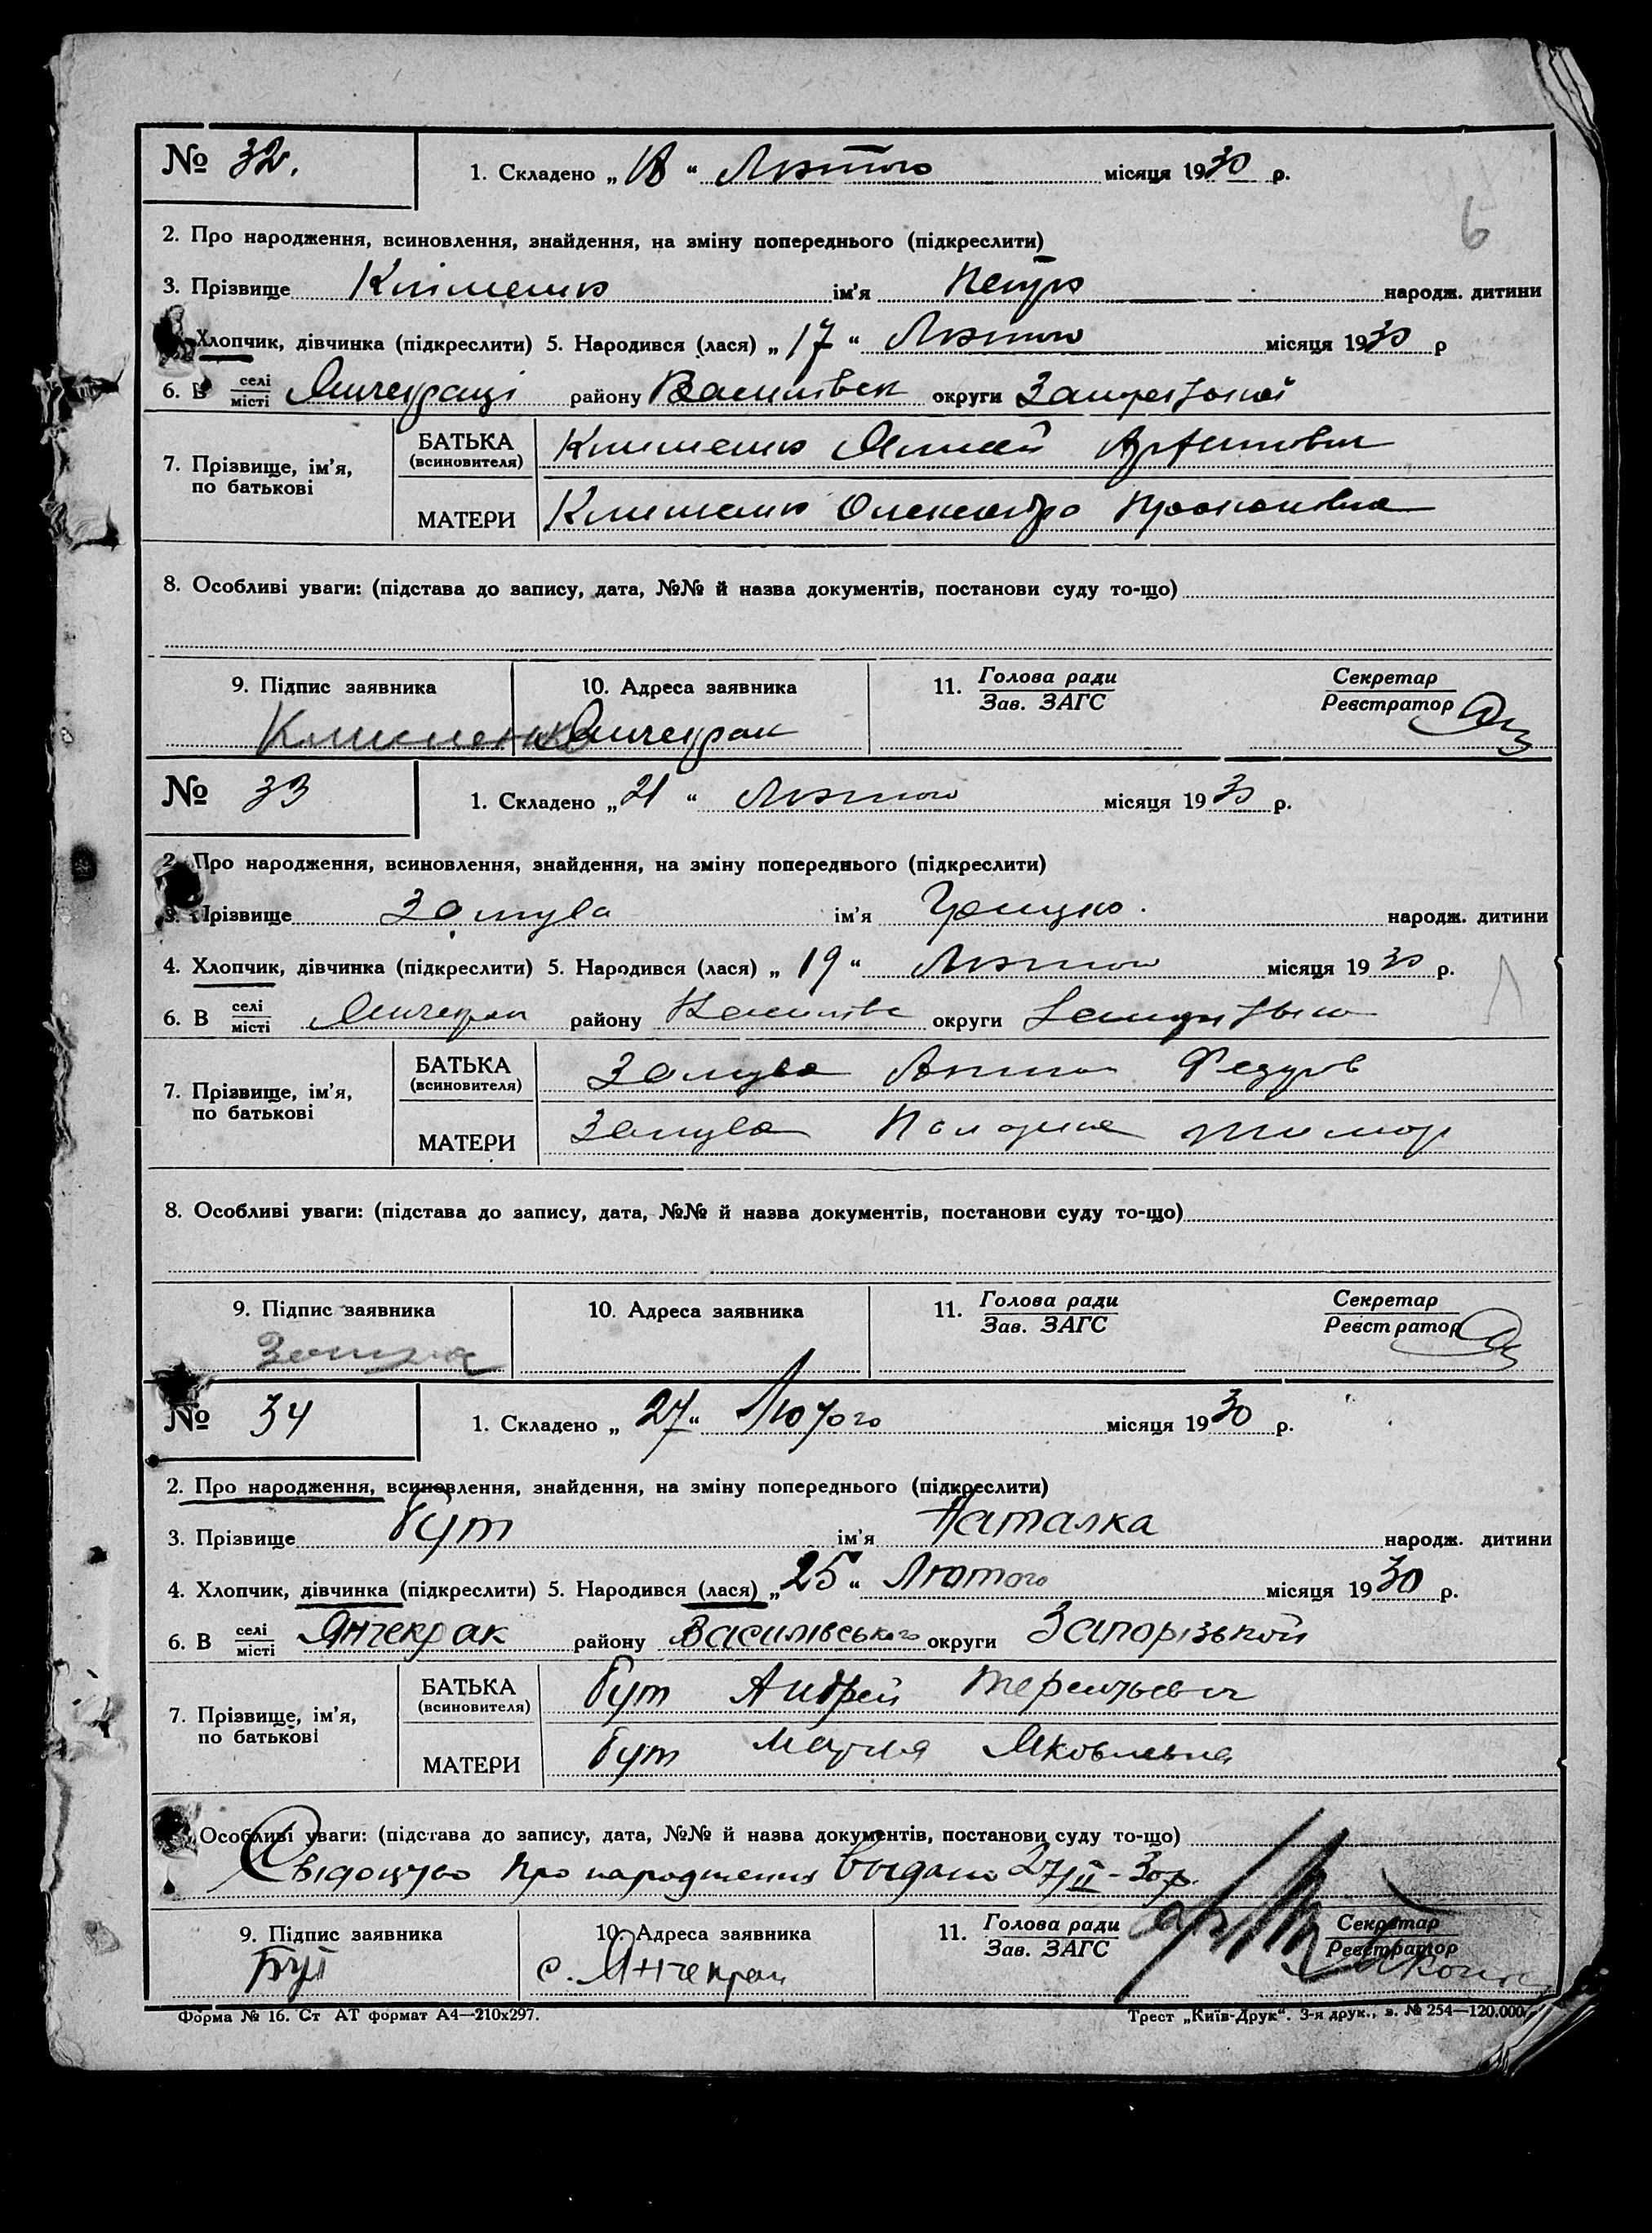 № 32. 1. Складено „18“ Лютого місяця 1930 р.
6
2. Про народження, всиновлення, знайдення, на зміну попереднього (підкреслити)
3. Прізвище Кліменко ім'я Петро народж. дитини
Хлопчик, дівчинка (підкреслити) 5. Народився (лася) „17“ Лютого місяця 1930 р
6. В селі місті Янчекраці району Василівськ округи Запорізької
7. Прізвище, ім'я, по батькові
БАТЬКА (всиновителя) Клименко
МАТЕРИ Клименко Олександра
8. Особливі уваги: (підстава до запису, дата, №№ й назва документів, постанови суду то-що)
9. Підпис заявника 10. Адреса заявника 11. Голова ради Зав. ЗАГС Секретар Реєстратор
Клименко Янчекрак
№ 33 1. Складено „21“ Лютого місяця 1930 р.
2. Про народження, всиновлення, знайдення, на зміну попереднього (підкреслити)
3. Прізвище ім'я народж. дитини
4. Хлопчик, дівчинка (підкреслити) 5. Народився (лася) „19“ Лютого місяця 1930 р.
6. В селі місті Янчекрак району Василівс округи
7. Прізвище, ім'я, по батькові
БАТЬКА (всиновителя) Федоров
МАТЕРИ Тимоф
8. Особливі уваги: (підстава до запису, дата, №№ й назва документів, постанови суду то-що)
9. Підпис заявника 10. Адреса заявника 11. Голова ради Зав. ЗАГС Секретар Реєстратор
№ 34 1. Складено „27“ Лютого місяця 1930 р.
2. Про народження, всиновлення, знайдення, на зміну попереднього (підкреслити)
3. Прізвище Бут ім'я Наталка народж. дитини
4. Хлопчик, дівчинка (підкреслити) 5. Народився (лася) „25“ Лютого місяця 1930 р.
6. В селі місті Янчекрак району Василівського округи Запорізькой
7. Прізвище, ім'я, по батькові
БАТЬКА (всиновителя) Бут Андрей Терентьевич
МАТЕРИ Бут Мария Яковлевна
Особливі уваги: (підстава до запису, дата, №№ й назва документів, постанови суду то-що)
Свідоцтво про народження выдано 27/II-30р.
9. Підпис заявника 10. Адреса заявника 11. Голова ради Зав. ЗАГС Секретар Реєстратор
Бут с. Янчекрак
Форма № 16. Ст АТ формат А4—210х297. Трест „Київ-Друк“. 3-я друк., з. № 254—120.000